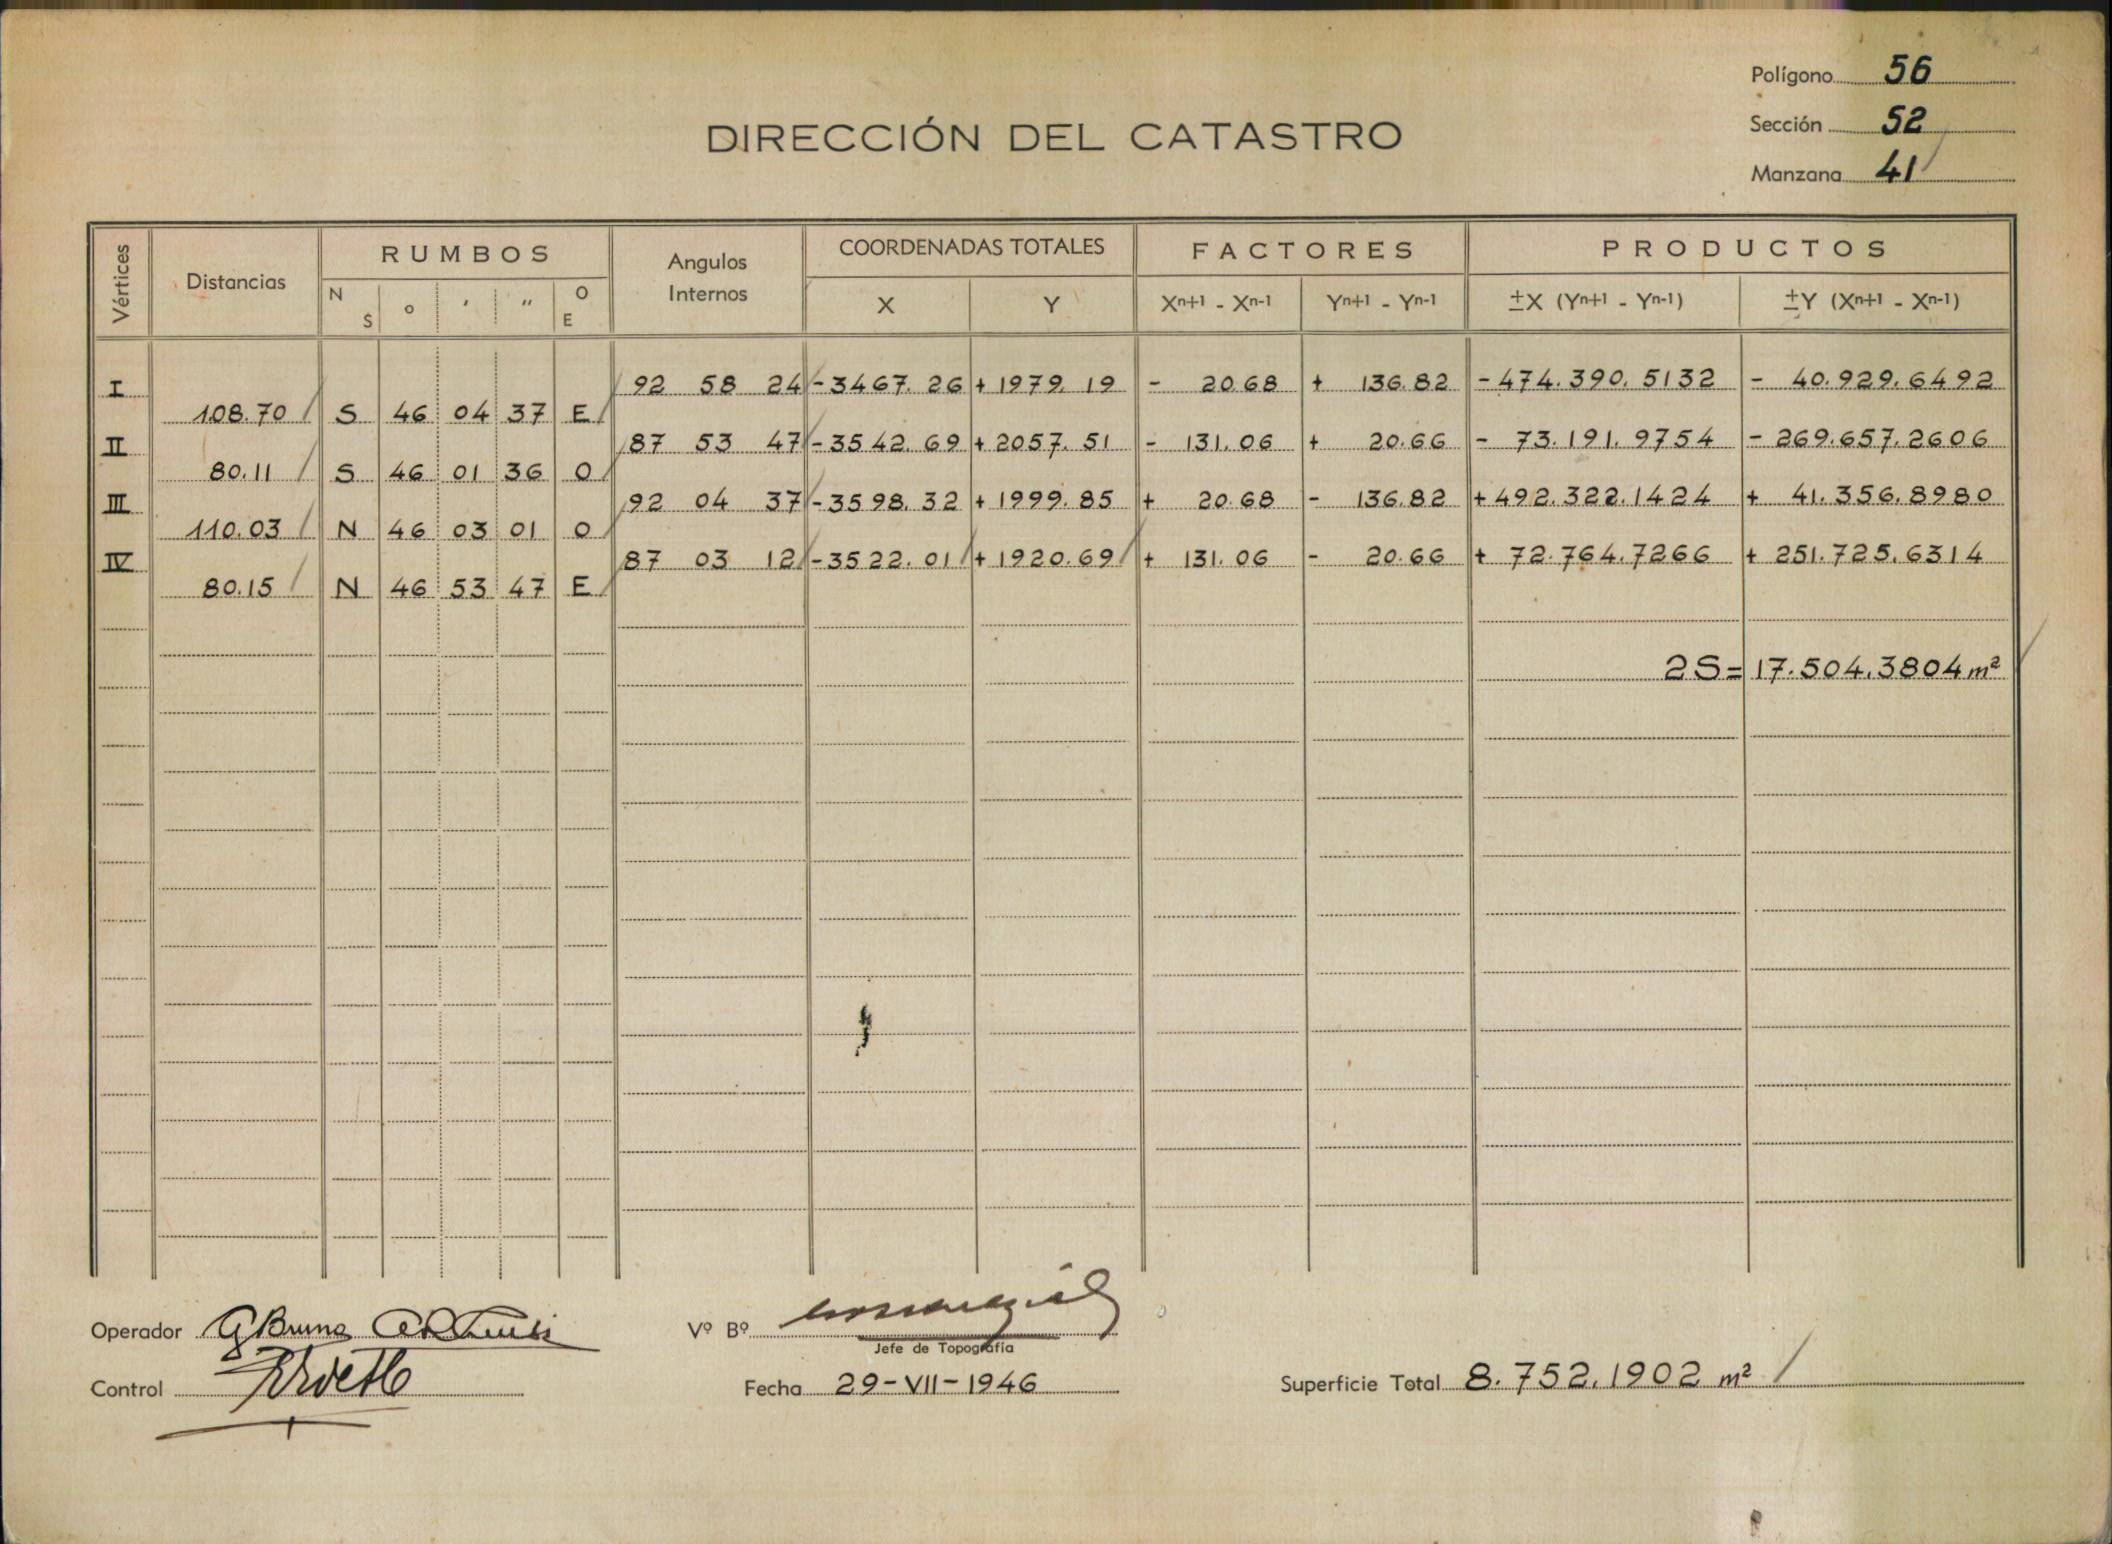 Polígono 56
DIRECCIÓN DEL CATASTRO
Sección 52
Manzana 41
Vértices Distancias RUMBOS Angulos Internos COORDENADAS TOTALES FACTORES PRODUCTOS
N S o ' " O E X Y Xn+1 - Xn-1 Yn+1 - Yn-1 ±X (Yn+1 - Yn-1) ±Y (Xn+1 - Xn-1)
I 92 58 24 -3467.26 +1979.19 - 20.68 + 136.82 -474.390.5132 - 40.929.6492
108.70 S 46 04 37 E
II 87 53 47 -3542.69 +2057.51 - 131.06 + 20.66 - 73.191.9754 - 269.657.2606
80.11 S 46 01 36 O
III 92 04 37 -3598.32 +1999.85 + 20.68 - 136.82 +492.322.1424 + 41.356.8980
110.03 N 46 03 01 O
IV 87 03 12 -3522.01 +1920.69 + 131.06 - 20.66 + 72.764.7266 + 251.725.6314
80.15 N 46 53 47 E
2S= 17.504.3804 m²
Operador G Bruno
Vº Bº
Jefe de Topografía
Control
Fecha 29-VII-1946
Superficie Total 8.752.1902 m²